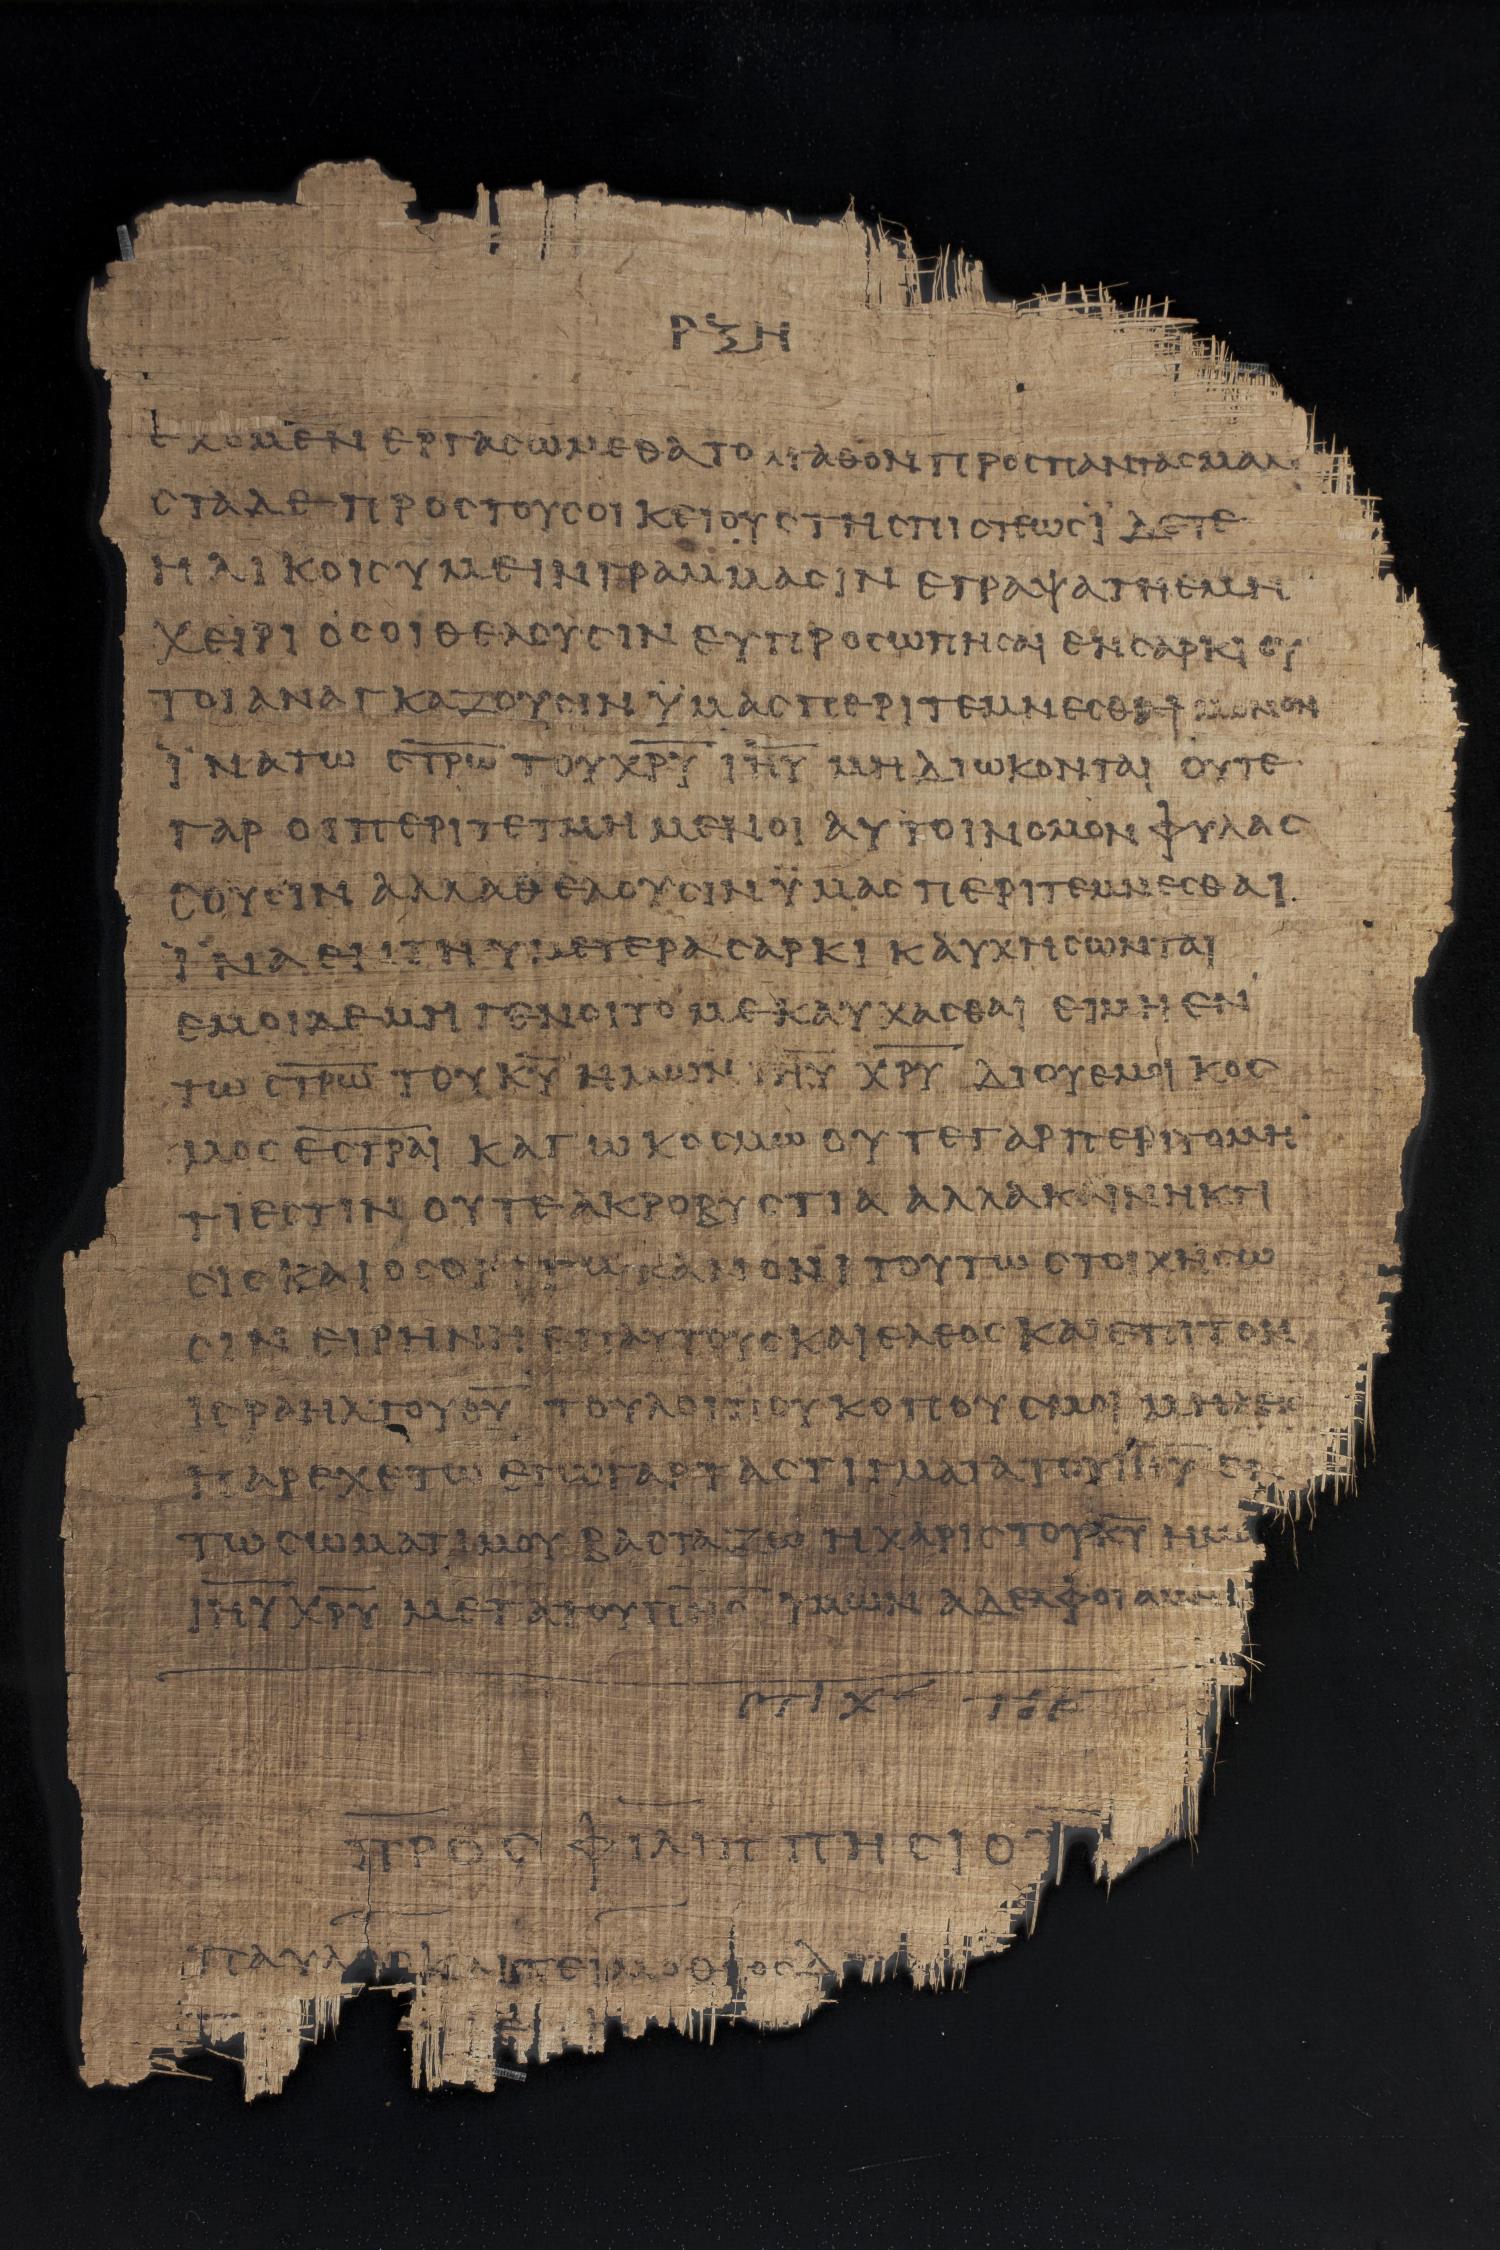 ΡΞΗ
ΕΧΟΜΕΝ ΕΡΓΑCΩΜΕΘΑ ΤΟ ΑΓΑΘΟΝ ΠΡΟCΠΑΝΤΑC ΜΑΛΙ
CΤΑ ΔΕ ΠΡΟC ΤΟΥC ΟΙΚΕΙΟΥC ΤΗC ΠΙCΤΕΩC ΪΔΕΤΕ
ΗΛΙΚΟΙC ΥΜΕΙΝ ΓΡΑΜΜΑCΙΝ ΕΓΡΑΨΑ ΤΗ ΕΜΗ
ΧΕΙΡΙ ΟCΟΙ ΘΕΛΟΥCΙΝ ΕΥΠΡΟCΩΠΗCΑΙ ΕΝ CΑΡΚΙ ΟΥ
ΤΟΙ ΑΝΑΓΚΑΖΟΥCΙΝ ΫΜΑC ΠΕΡΙΤΕΜΝΕCΘΑΙ ΜΟΝΟΝ
ΪΝΑ ΤΩ C̅Τ̅Ρ̅Ω̅ ΤΟΥ Χ̅Ρ̅Υ̅ Ι̅Η̅Υ̅ ΜΗ ΔΙΩΚΟΝΤΑΙ ΟΥΤΕ
ΓΑΡ ΟΙ ΠΕΡΙΤΕΤΜΗΜΕΝΟΙ ΑΥΤΟΙ ΝΟΜΟΝ ΦΥΛΑC
CΟΥCΙΝ ΑΛΛΑ ΘΕΛΟΥCΙΝ ΫΜΑC ΠΕΡΙΤΕΜΝΕCΘΑΙ
ΪΝΑ ΕΝ ΤΗ ΥΜΕΤΕΡΑ CΑΡΚΙ ΚΑΥΧΗCΩΝΤΑΙ
ΕΜΟΙ ΔΕ ΜΗ ΓΕΝΟΙΤΟ ΜΕ ΚΑΥΧΑCΘΑΙ ΕΙ ΜΗ ΕΝ
ΤΩ C̅Τ̅Ρ̅Ω̅ ΤΟΥ Κ̅Υ̅ ΗΜΩΝ Ι̅Η̅Υ̅ Χ̅Ρ̅Υ̅ ΔΙ ΟΥ ΕΜΟΙ ΚΟC
ΜΟC Ε̅C̅Τ̅Ρ̅Α̅Ι̅ ΚΑΓΩ ΚΟCΜΩ ΟΥΤΕ ΓΑΡ ΠΕΡΙΤΟΜΗ
ΤΙ ΕCΤΙΝ ΟΥΤΕ ΑΚΡΟΒΥCΤΙΑ ΑΛΛΑ ΚΑΙΝΗ ΚΤΙ
CΙC ΚΑΙ ΟCΟΙ ΤΩ ΚΑΝΟΝΙ ΤΟΥΤΩ CΤΟΙΧΗCΩ
CΙΝ ΕΙΡΗΝΗ ΕΠ ΑΥΤΟΥC ΚΑΙ ΕΛΕΟC ΚΑΙ ΕΠΙ ΤΟΝ
ΙCΡΑΗΛ ΤΟΥ Θ̅Υ̅ ΤΟΥ ΛΟΙΠΟΥ ΚΟΠΟΥC ΜΟΙ ΜΗΔΕΙC
ΠΑΡΕΧΕΤΩ ΕΓΩ ΓΑΡ ΤΑ CΤΙΓΜΑΤΑ ΤΟΥ Ι̅Η̅Υ̅ ΕΝ
ΤΩ CΩΜΑΤΙ ΜΟΥ ΒΑCΤΑΖΩ Η ΧΑΡΙC ΤΟΥ Κ̅Υ̅ ΗΜΩ
Ι̅Η̅Υ̅ Χ̅Ρ̅Υ̅ ΜΕΤΑ ΤΟΥ Π̅Ν̅C̅ ΥΜΩΝ ΑΔΕΛΦΟΙ ΑΜΗΝ
CΤΙΧ ΤΟΕ
ΠΡΟC ΦΙΛΙΠΠΗCΙΟΥ
ΠΑΥΛΟC ΚΑΙ ΤΕΙΜΟΘΕΟC Δ